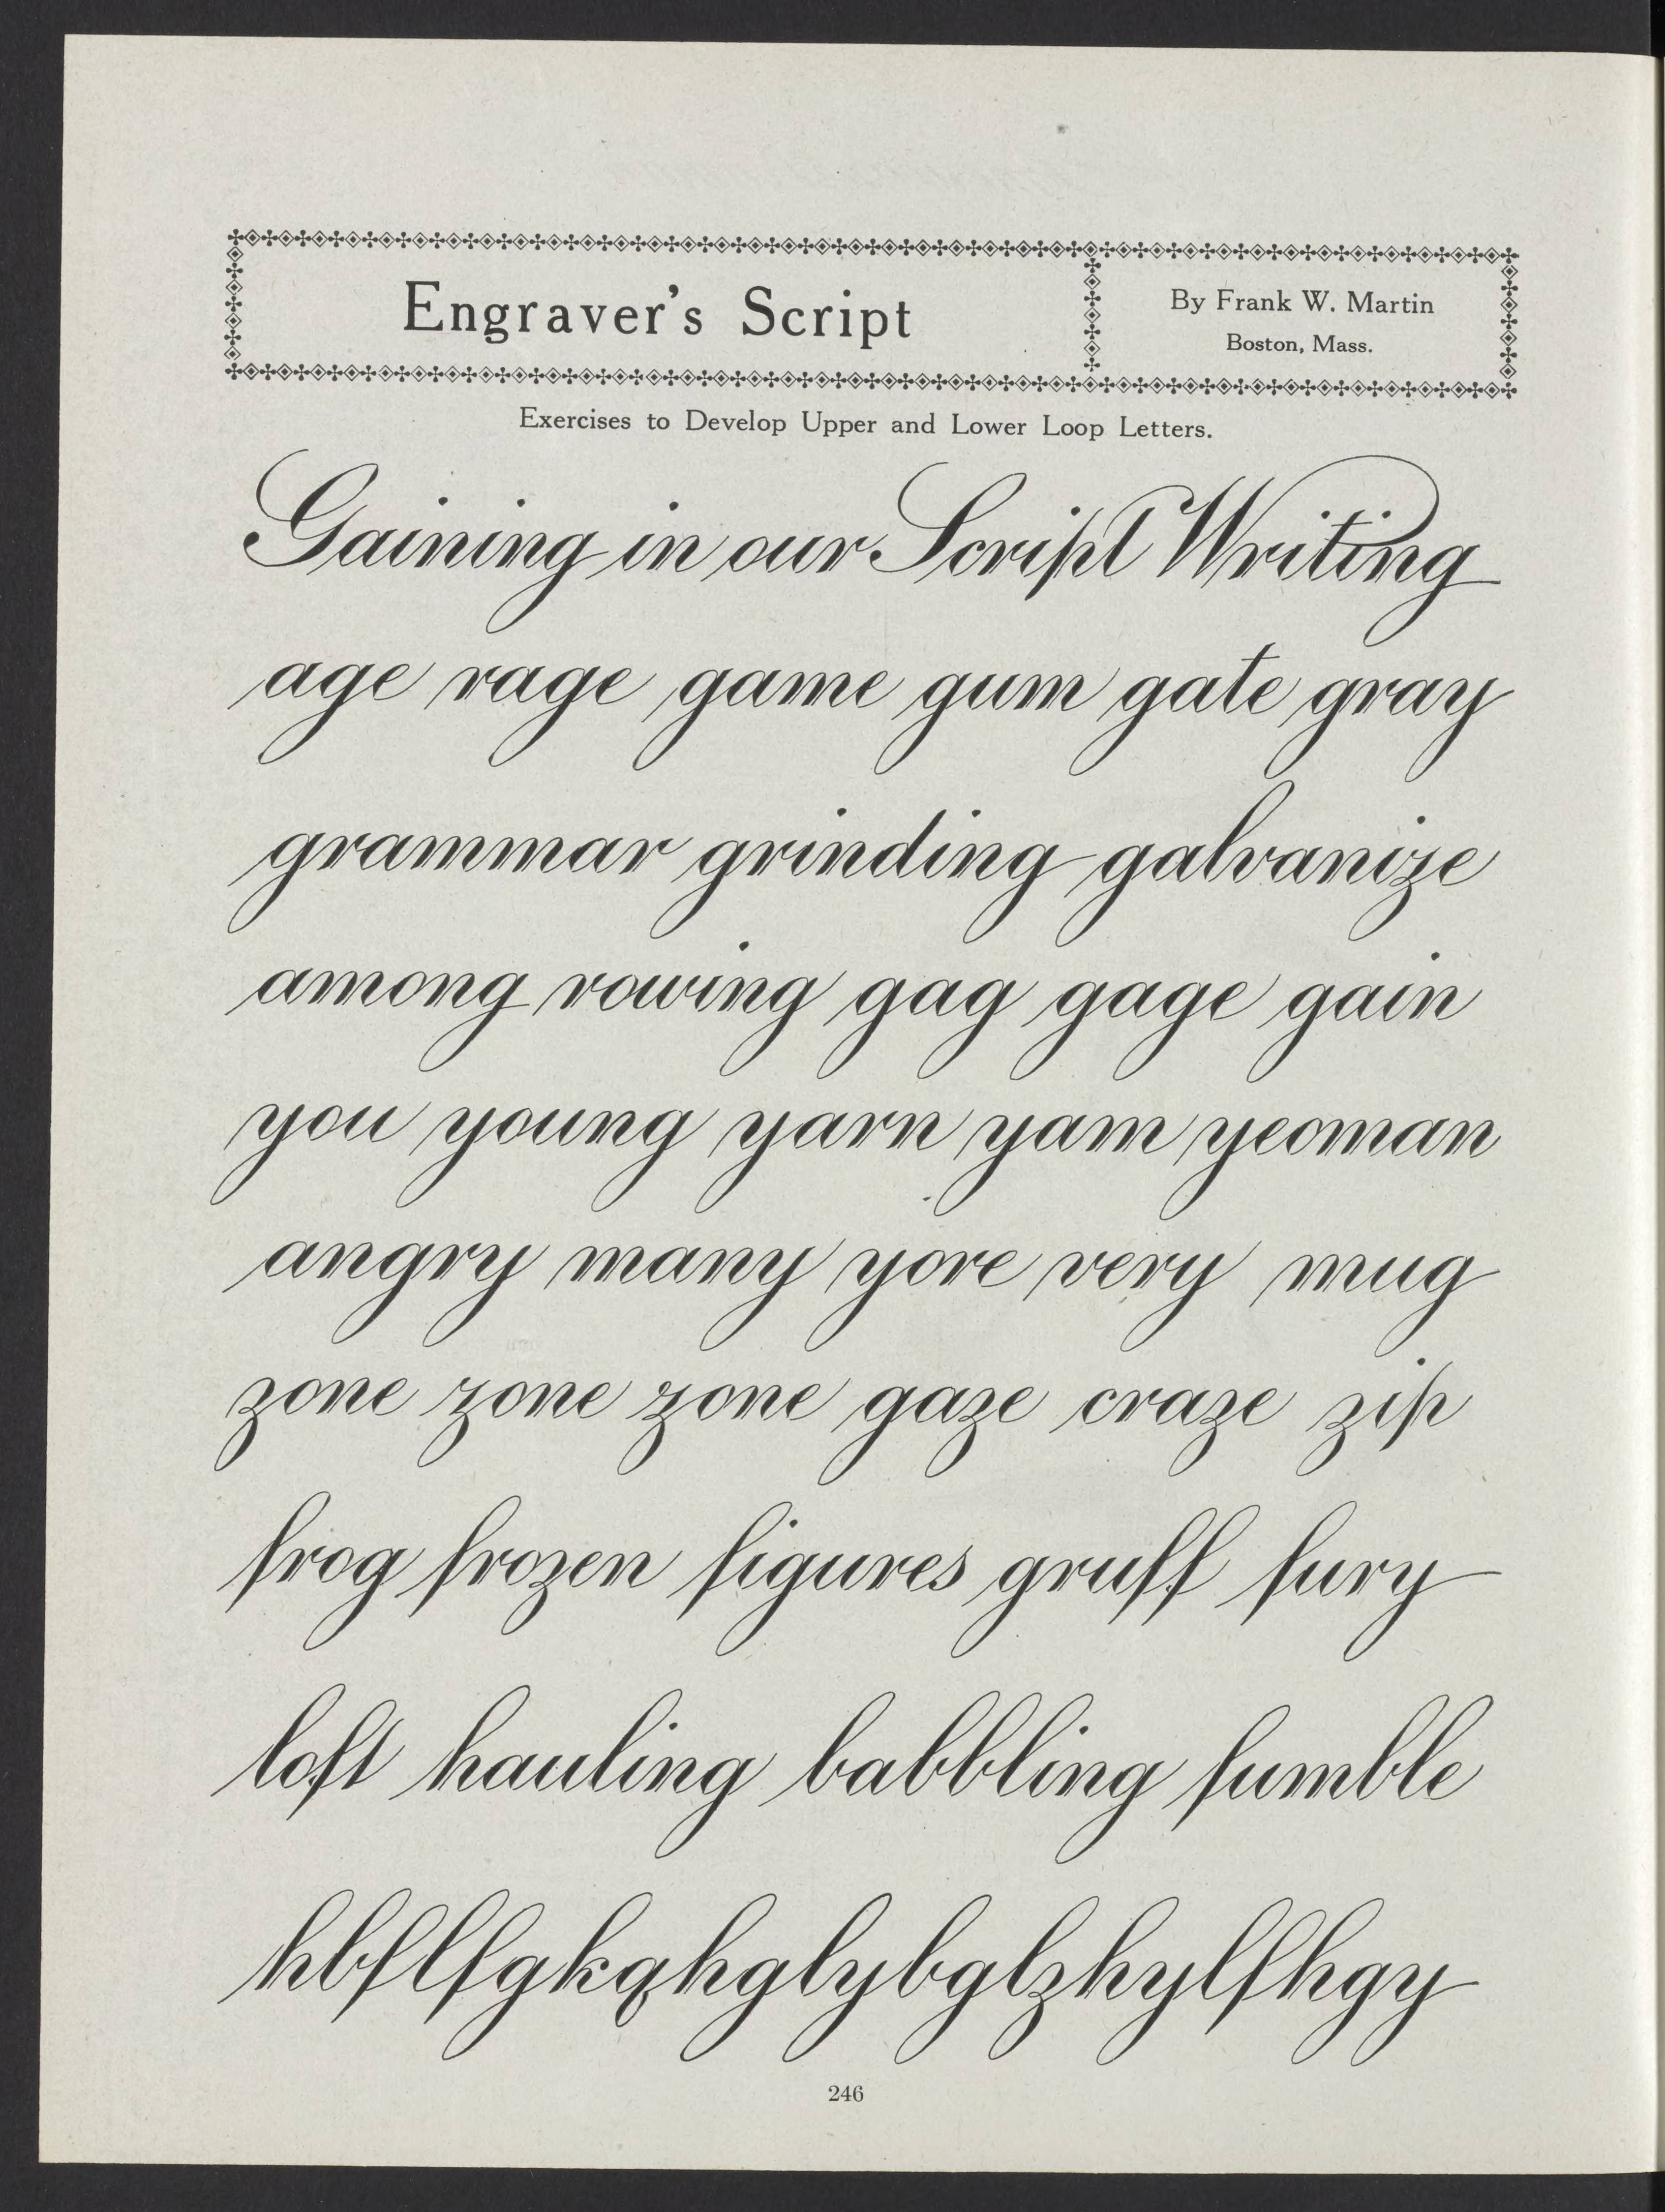 Engraver's Script
By Frank W. Martin
Boston, Mass.
Exercises to Develop Upper and Lower Loop Letters.
Gaining in our Script Writing
age rage game gum gate gray
grammar grinding galvanize
among rowing gag gage gain
you young yarn yam yeoman
angry many yore very mug
zone zone zone gaze craze zip
frog frozen figures gruff fury
loft hauling babbling fumble
hbflfgkqhglybglzhylfhgy
246